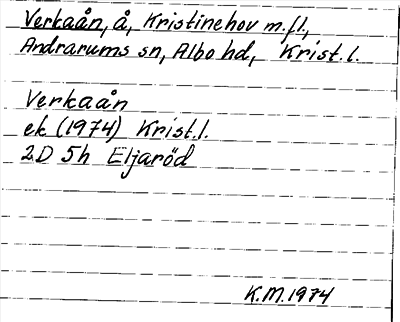 Verkaån, å, Kristinehov m.fl.,
Andrarums sn, Albo hd, Krist. l.
Verkaån
ek (1974) Krist. l.
2D 5h Eljaröd
K.M. 1974